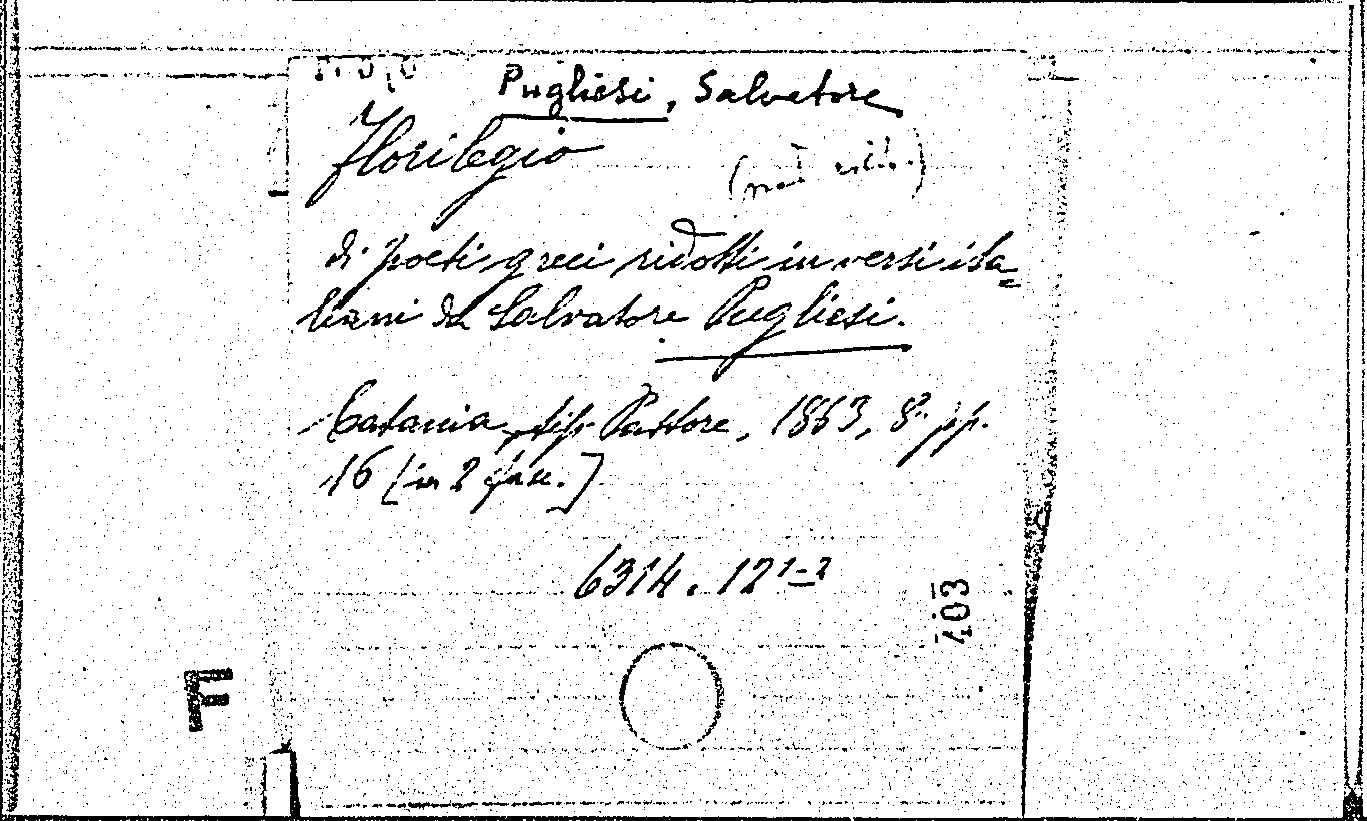 Pugliesi, Salvatore
Florilegio
di poeti greci ridotti in versi ita=
liani da Salvatore Pugliesi.
Catania, tip. Pastore, 1863, 8° pp.
16 [in 2 fasc.]
6314. 12 1-2
403
F